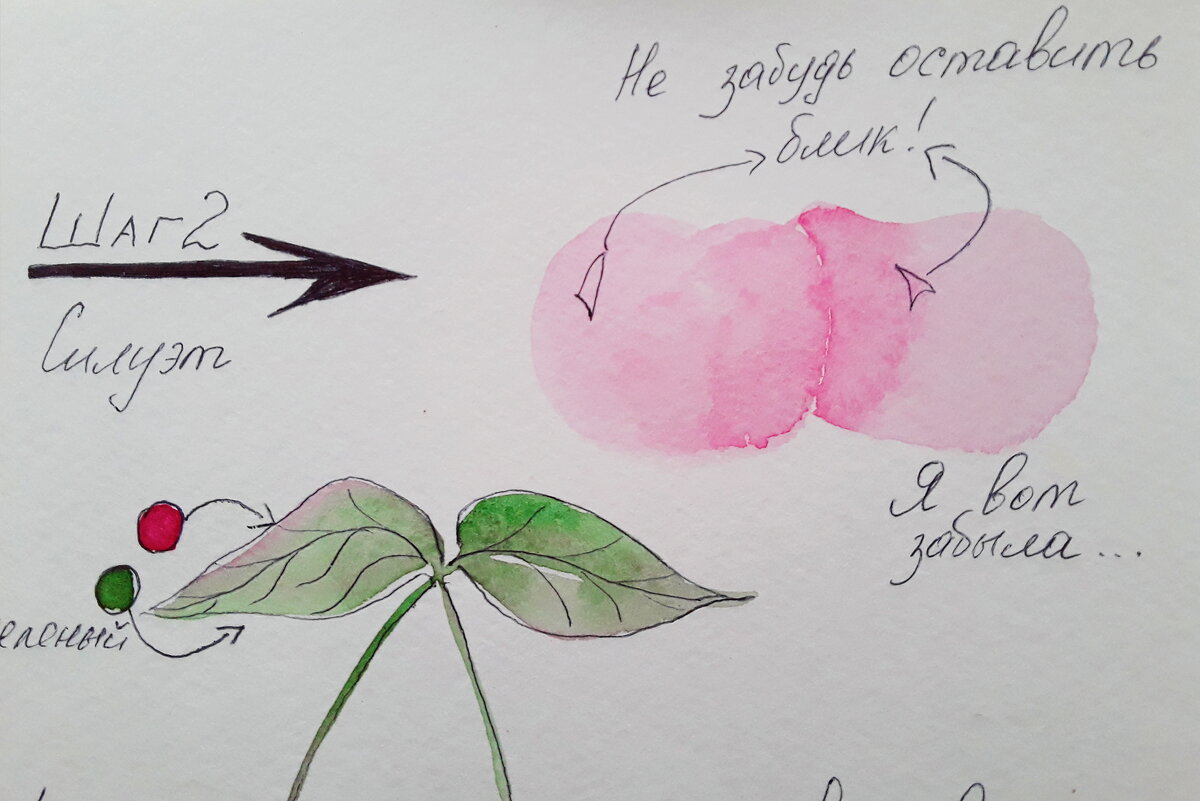 Не забудь оставить
блик!
Шаг 2
Силуэт
Я вот
забыла...
еленый